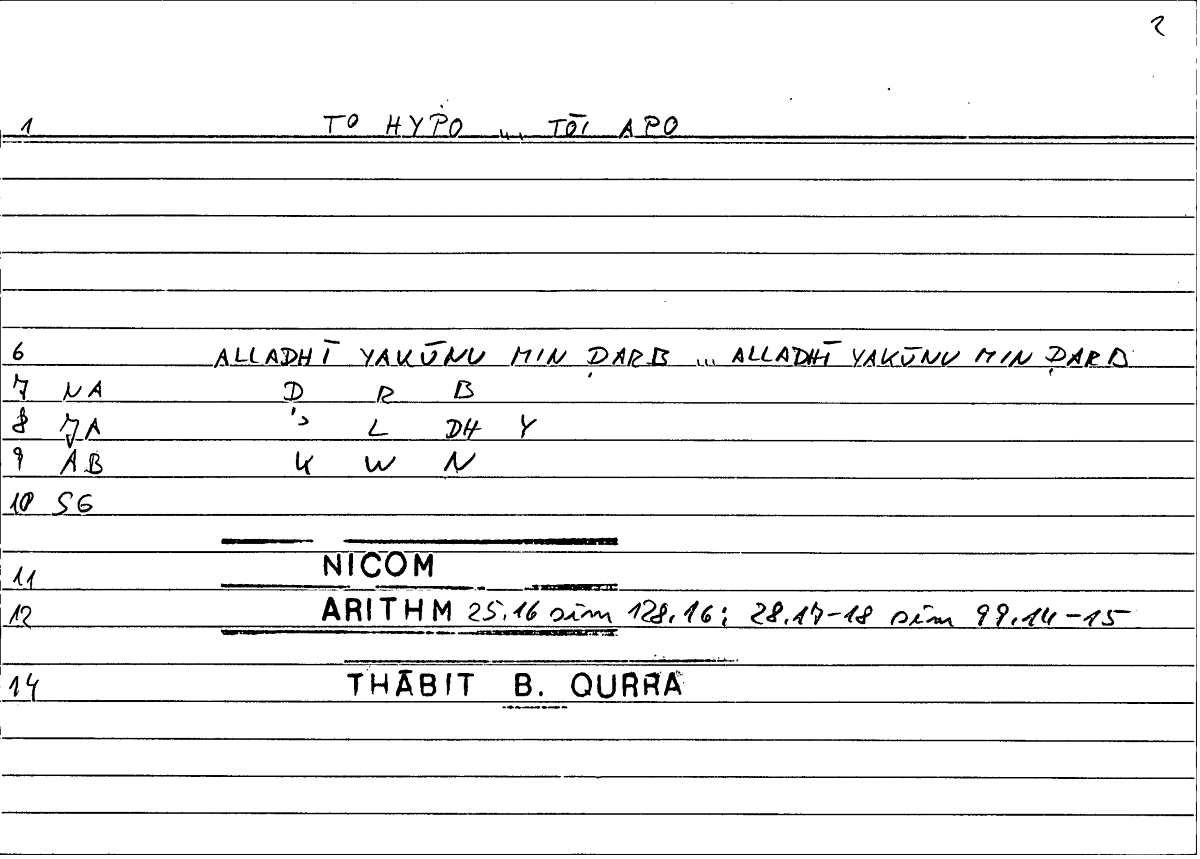 2
1 TO HYPO ... TŌI APO
6 ALLADHĪ YAKŪNU MIN ḌARB ... ALLADHĪ YAKŪNU MIN ḌARB
7 NA Ḍ R B
8 JA ʾ L DH Y
9 AB K W N
10 SG
11 NICOM
12 ARITHM 25.16 sim 128.16; 28.17-18 sim 99.14-15
14 THĀBIT B. QURRA